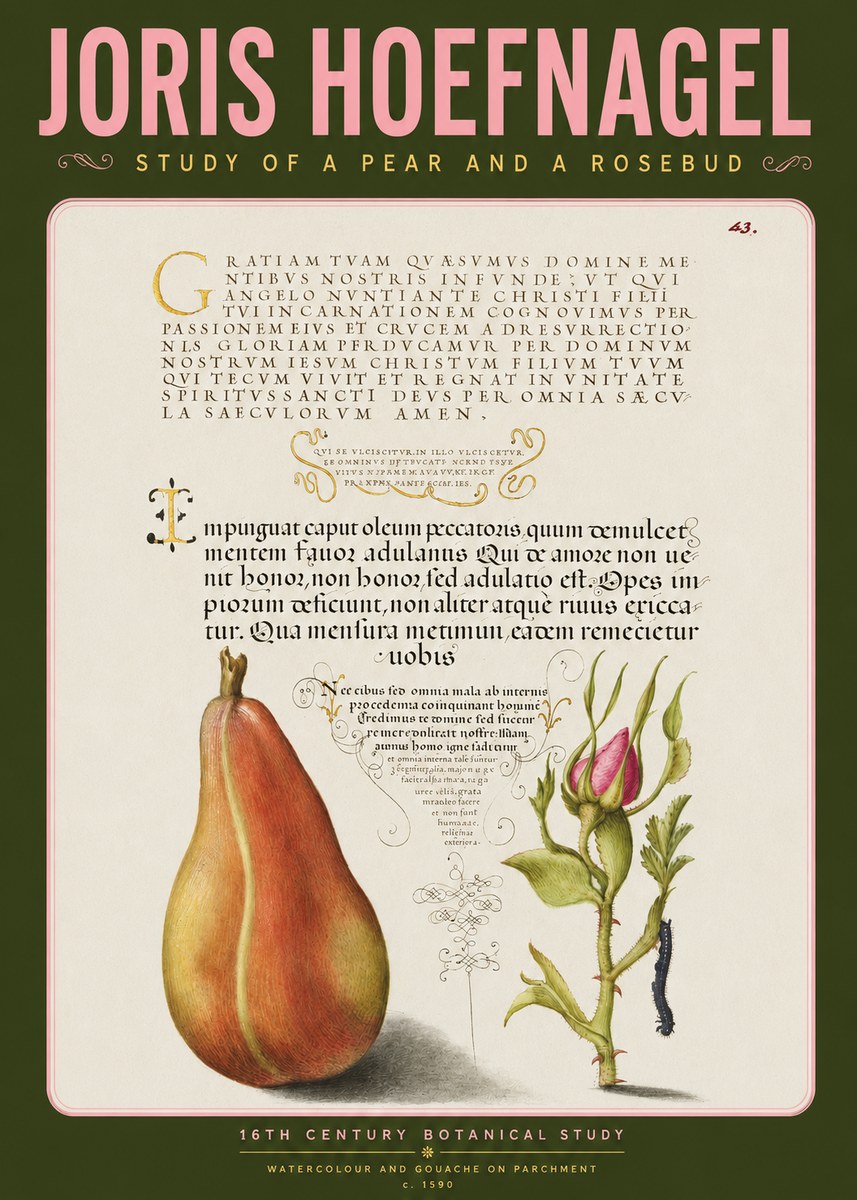 JORIS HOEFNAGEL
STUDY OF A PEAR AND A ROSEBUD
43.
GRATIAM TVAM QVÆSVMVS DOMINE ME
NTIBVS NOSTRIS INFVNDE; VT QVI
ANGELO NVNTIANTE CHRISTI FILII
TVI INCARNATIONEM COGNOVIMVS PER
PASSIONEM EIVS ET CRVCEM ADRESVRRECTIO-
NIS GLORIAM PFRDVCAMVR PER DOMINVM
NOSTRVM IESVM CHRISTVM FILIVM TVVM
QVI TECVM VIVIT ET REGNAT IN VNITATE
SPIRITVS SANCTI DEVS PER OMNIA SÆCV-
LA SAECVLORVM AMEN.
QVI SE VLCISCITVR.IN ILLO VLCISCETVR.
Impinguat caput oleum peccatoris, quum demulcet
mentem fauor adulantis Qui de amore non ue-
nit honor, non honor, sed adulatio est. Opes im-
piorum deficiunt, non aliter atquè riuus exicca-
tur. Qua mensura metimini, eadem remecietur
uobis
Nec cibus sed omnia mala ab internis
procedentia coinquinant hominē
Credimus te domine sed
homo igne
et omnia interna
grata
facere
et non sunt
humanae.
exteriora.
16TH CENTURY BOTANICAL STUDY
WATERCOLOUR AND GOUACHE ON PARCHMENT
c. 1590